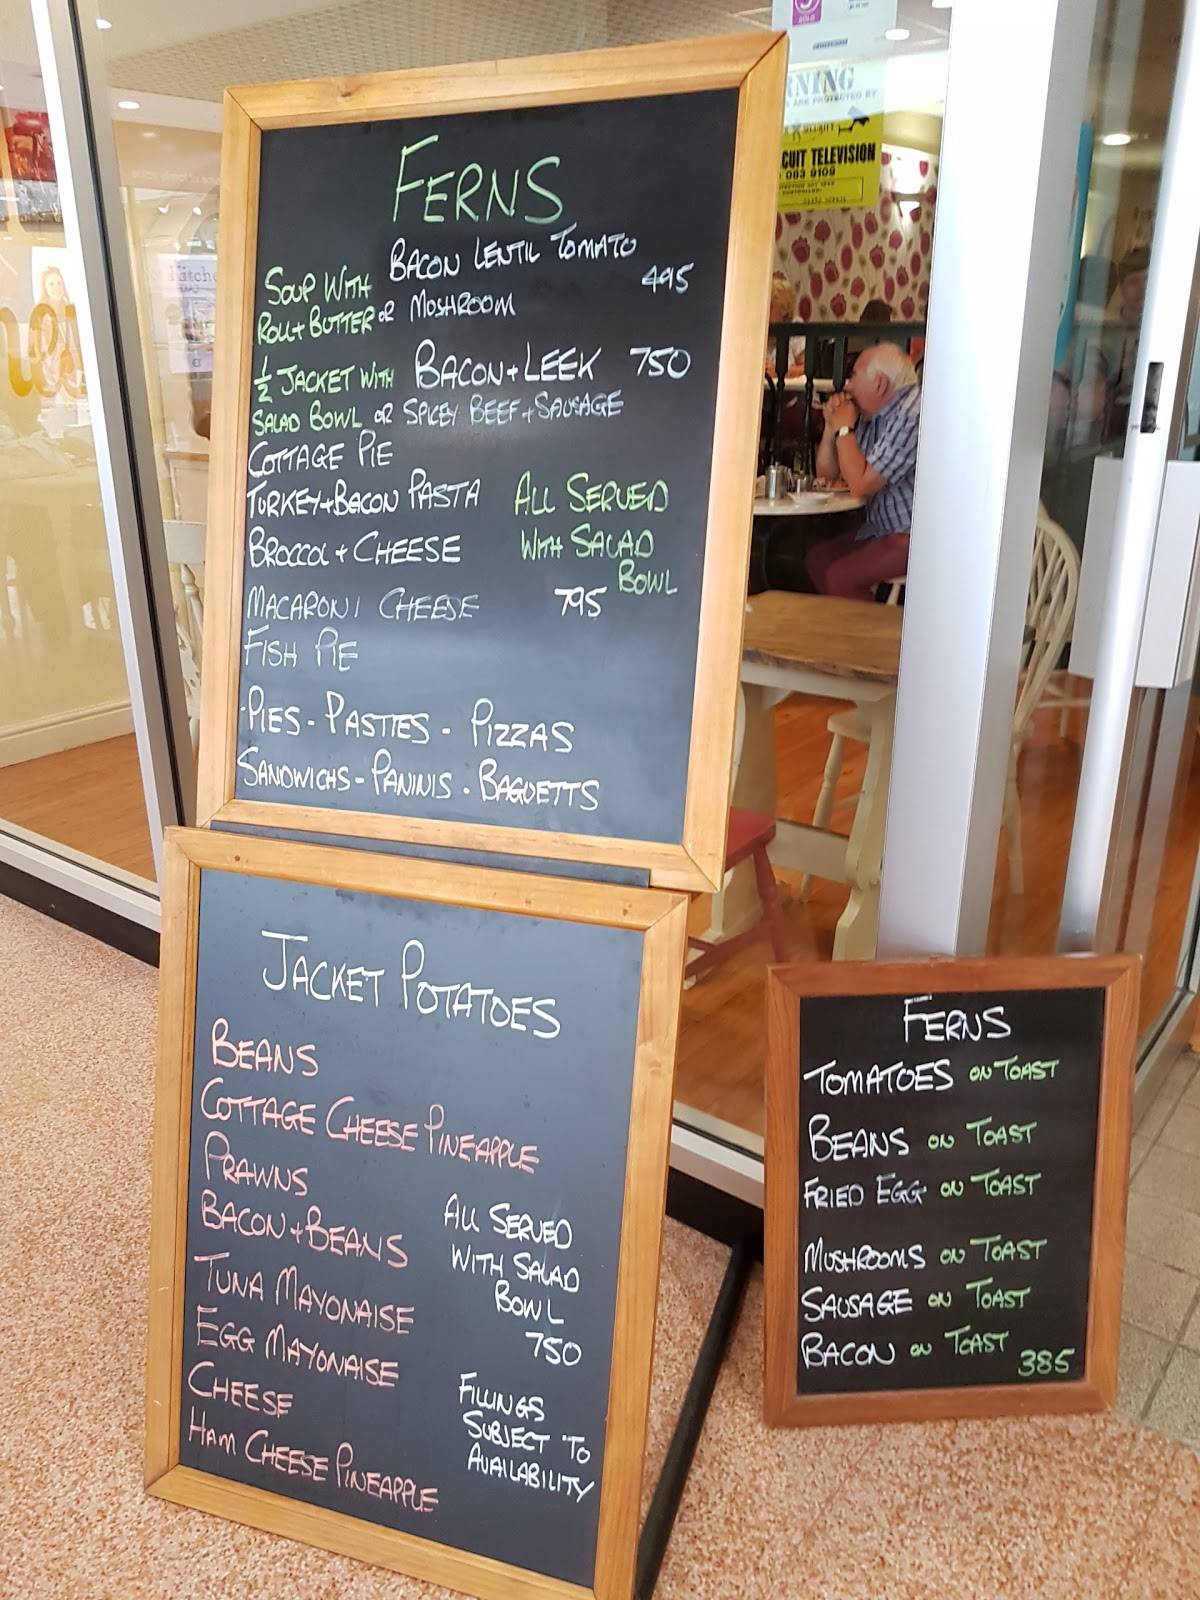 FERNS
BACON LENTIL TOMATO
SOUP WITH
495
ROLL + BUTTER OR MUSHROOM
½ JACKET WITH BACON + LEEK 750
SALAD BOWL OR SPICEY BEEF + SAUSAGE
COTTAGE PIE
TURKEY + BACON PASTA ALL SERVED
BROCCOL + CHEESE WITH SALAD
BOWL
MACARONI CHEESE 795
FISH PIE
PIES - PASTIES - PIZZAS
SANDWICHS - PANINIS - BAGUETTS
JACKET POTATOES
BEANS
COTTAGE CHEESE PINEAPPLE
PRAWNS
BACON + BEANS
TUNA MAYONAISE
EGG MAYONAISE
CHEESE
HAM CHEESE PINEAPPLE
ALL SERVED
WITH SALAD
BOWL
750
FILLINGS
SUBJECT TO
AVAILABILITY
FERNS
TOMATOES ON TOAST
BEANS ON TOAST
FRIED EGG ON TOAST
MUSHROOMS ON TOAST
SAUSAGE ON TOAST
BACON ON TOAST
385
RNING
ARE PROTECTED BY
CUIT TELEVISION
083 9109